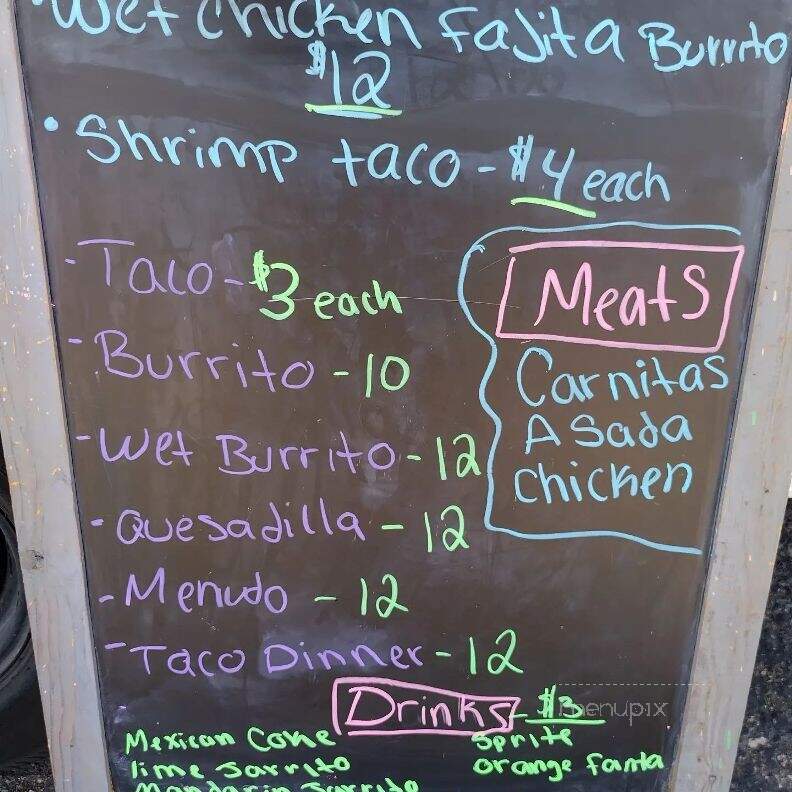 • Wet Chicken Fajita Burrito
$12
• Shrimp taco - $4 each
- Taco - $3 each
- Burrito - 10
- Wet Burrito - 12
- Quesadilla - 12
- Menudo - 12
- Taco Dinner - 12
Meats
Carnitas
Asada
Chicken
Drinks - $3
Mexican Coke
lime Jarrito
Mandarin Jarrito
Sprite
orange fanta
menupix